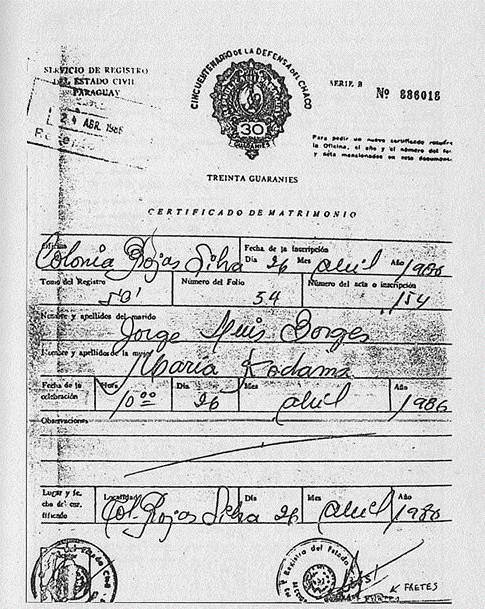 SERVICIO DE REGISTRO
DEL ESTADO CIVIL
PARAGUAY
24 ABR. 1986
CINCUENTENARIO DE LA DEFENSA DEL CHACO
30
GUARANIES
SERIE B
Nº 886018
Para pedir un nuevo certificado
la Oficina, el año y el número del
y acta mencionados en este documento.
TREINTA GUARANIES
CERTIFICADO DE MATRIMONIO
Oficina
Colonia Rojas Silva
Fecha de la inscripción
Día 26 Mes abril Año 1986
Tomo del Registro
Número del Folio
54
Número del acta o inscripción
154
Nombre y apellidos del marido
Jorge Luis Borges
Nombre y apellidos de la mujer
Maria Kodama
Fecha de la celebración
Hora 10:00
Día 26
Mes abril
Año 1986
Observaciones
Lugar y fecha de certificado
Localidad Col. Rojas Silva
Día 26
Mes abril
Año 1986
Registro del Estado